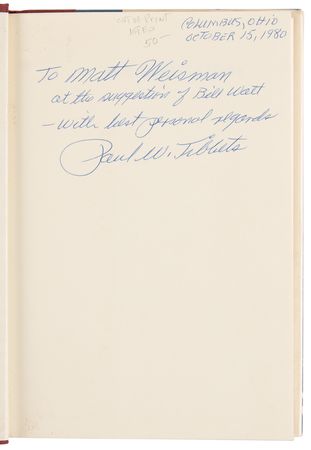 OUT OF PRINT
50-
COLUMBUS, OHIO
OCTOBER 15, 1980
To Matt Weisman
at the suggestion of Bill Watt
- with best personal regards
Paul W. Tibbets